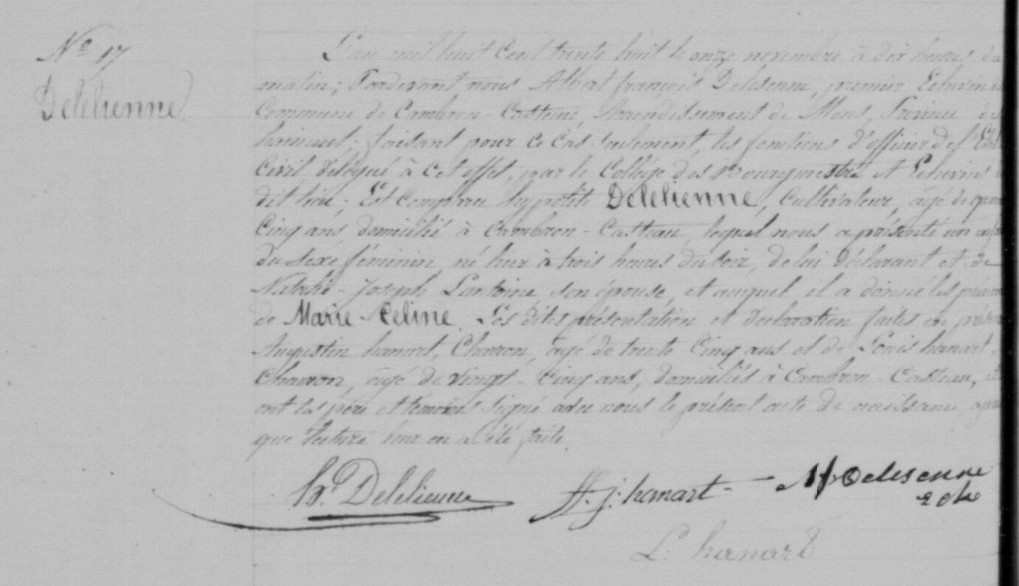 N° 17
Delelienne
L'an mil huit cent trente huit le onze novembre à dix heures du
matin; Pardevant nous Albert françois Delesenne, premier Echevin
Commune de Cambron-Casteau, Arrondissement de Mons, Province de
hainaut; faisant pour ce cas seulement, les fonctions d'officier de l'Etat
Civil délégué à cet effet, par le Collége des Bourgmestre et Echevins
dit lieu; Est Comparu hypolite Delelienne, Cultivateur, agé de
Cinq ans, domicilié à Cambron-Casteau, lequel nous a présenté un
du sexe féminin, né hier à trois heures du soir, de lui déclarant et de
Joseph Lantoine son épouse, et auquel il a donné les
de Marie-Celine. Les dites présentation et déclaration faites en
Augustin hanart, Charron, agé de trente Cinq ans et de Louis hanart,
Charron, agé de vingt-Cinq ans, domiciliés à Cambron-Casteau,
ont les père et témoins signé avec nous le présent acte de naissance,
que lecture leur en a été faite.
hte Delelienne
j. hanart
Delesenne
L. hanart